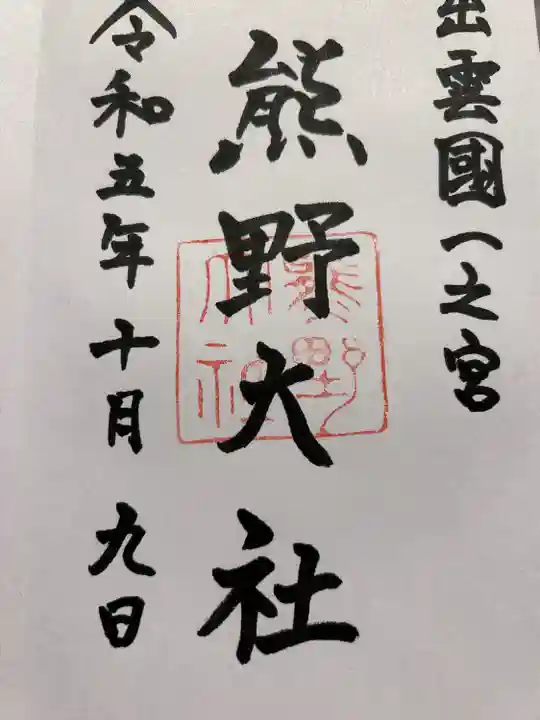 出雲國一之宮
熊野大社
熊野
大社
令和五年十月九日